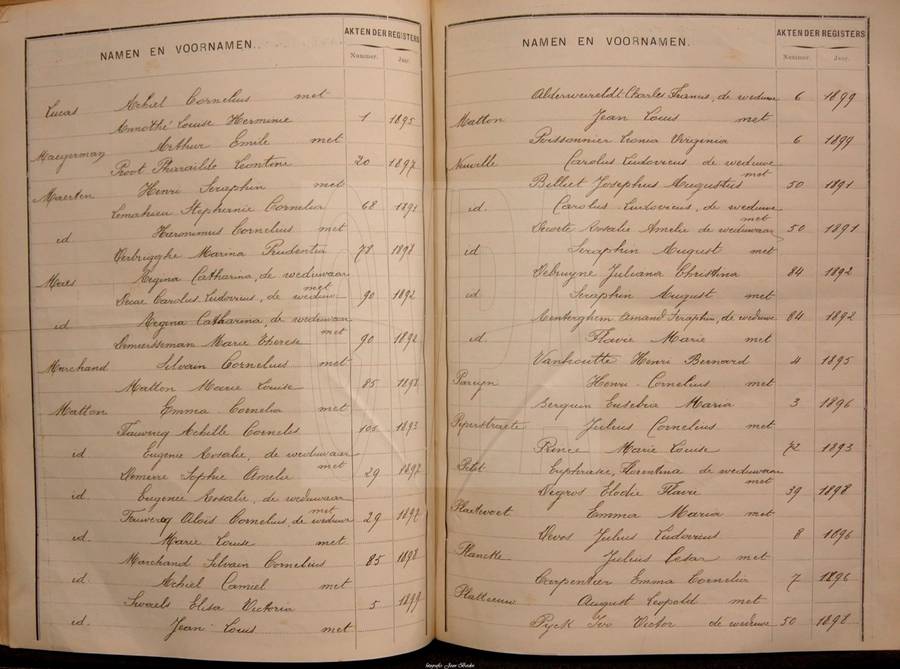 NAMEN EN VOORNAMEN.
AKTEN DER REGISTERS
Nummer. Jaar.
Lucas Achiel Cornelius met
Annothé Louise Herminie 1 1895
Maeyerman Arthur Emile met
Proot Pharailde Leontine 20 1897
Maerten Henri Seraphin met
Lemahieu Stephanie Cornelia 68 1891
id Hieronimus Cornelius met
Verbrugghe Marina Prudentia 78 1898
Maes Regina Catharina, de weduwaar
met
Carolus Ludovicus, de weduwe 90 1892
id Regina Catharina, de weduwaar
met
Lemeersseman Marie Therese 90 1892
Marchand Silvain Cornelius met
Matton Marie Louise 85 1898
Matton Emma Cornelia met
Fauvercq Achille Cornelis 105 1893
id Eugenie Rosalie, de weduwaar
met
Sophie Amelie 29 1897
id. Eugenie Rosalie, de weduwaar
met
Fauvercq Alois Cornelius, de weduwe 29 1897
id. Marie Louise met
Marchand Silvain Cornelius 85 1898
id. Achiel Camiel met
Swaels Elisa Victoria 5 1899
id. Jean Louis met
NAMEN EN VOORNAMEN.
AKTEN DER REGISTERS
Nummer. Jaar.
Alderweireldt Charles Francis, de weduwe 6 1899
Matton Jean Louis met
Poissonnier Leonia Virginia 6 1899
Neuville Carolus Ludovicus de weduwe
met
Billiet Josephus Augustus 50 1891
id. Carolus Ludovicus, de weduwe
met
Rosalie Amelie de weduwaar 50 1891
id Seraphin August met
Debruyne Juliana Christina 84 1892
id Seraphin August met
Centerghem Amand Seraphin, de weduwe 84 1892
id. Flavie Marie met
Vanhoutte Henri Bernard 4 1895
Pareyn Henri Cornelius met
Berquin Eusebia Maria 3 1896
Piperstraete Julius Cornelius met
Prince Marie Louise 72 1893
Petit Euphrasie, Florentina de weduwaar
met
Degros Elodie Flavie 39 1898
Plaetevoet Emma Maria met
Devos Julius Ludovicus 8 1896
Plancke Julius Cesar met
Carpentier Emma Cornelia 7 1896
Platteeuw August Leopold met
Pyck Ivo Victor de weduwe 50 1898